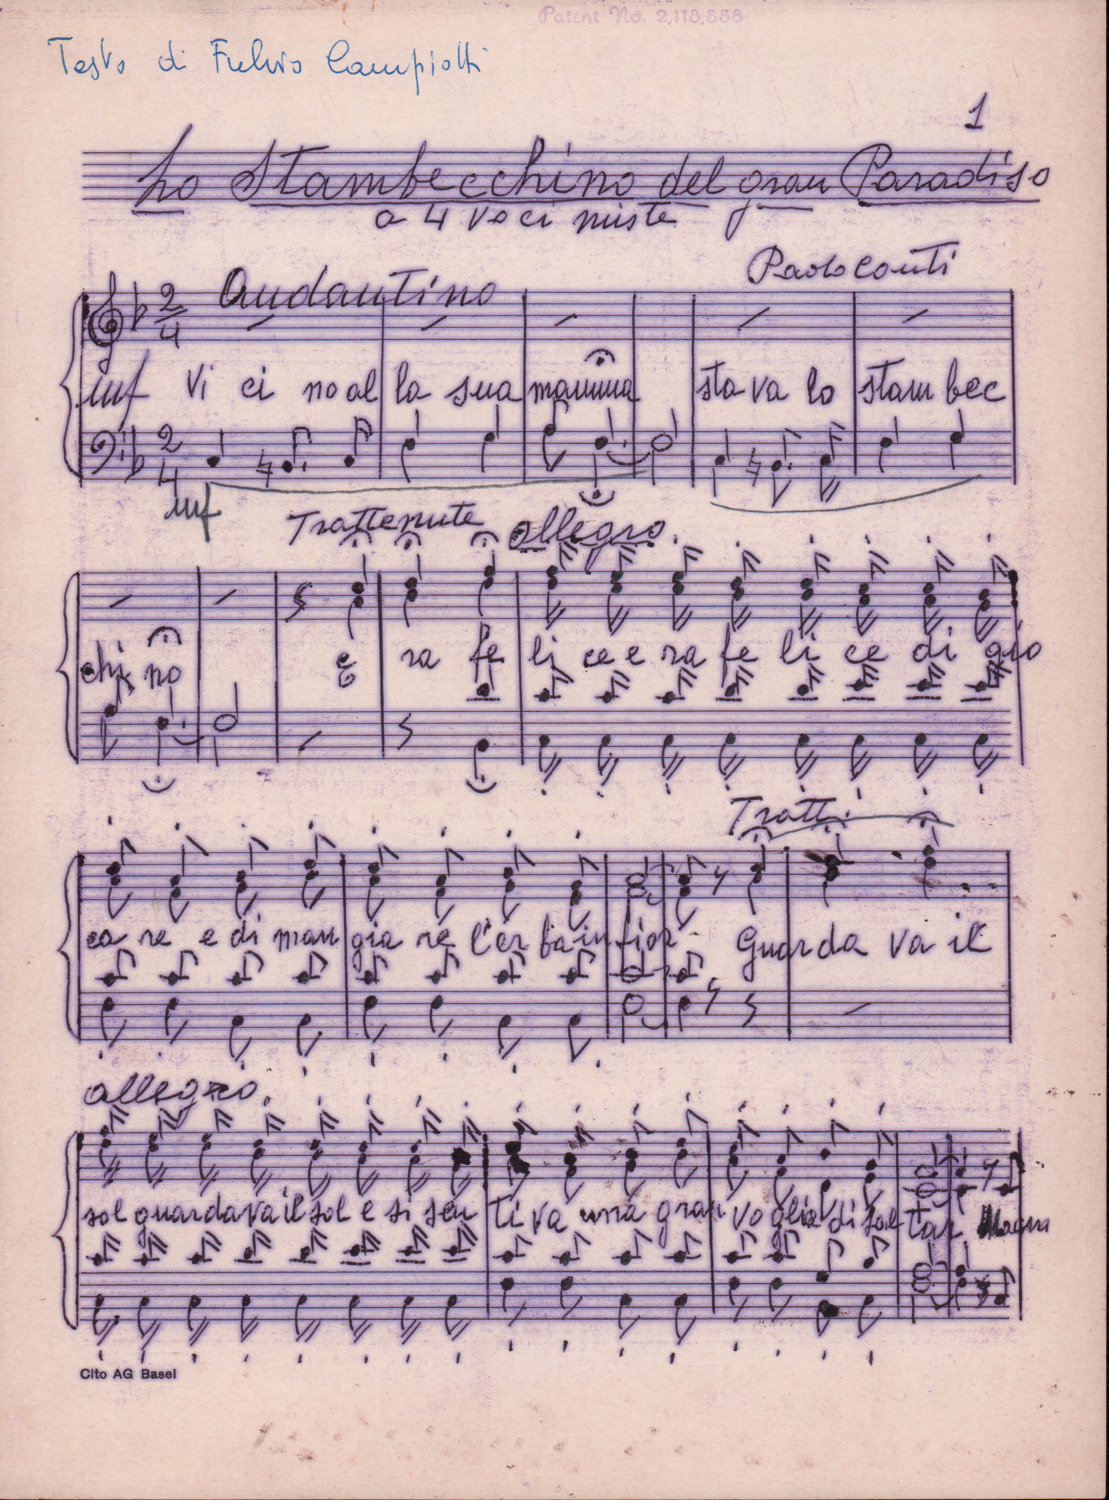 Patent No. 2,118,888
Testo di Fulvio Campiotti
1
Lo Stambecchino del gran Paradiso
a 4 voci miste
Paolo Conti
Andantino
2/4
mf Vi ci no al la sua mamma sta va lo stam bec
2/4
mf
Trattenute allegro.
chi no e ra fe li ce e ra fe li ce di gio
Tratt.
ca re e di man gia re l'er ba in fior Guarda va il
allegro.
sol guardava il sol e si sen ti va una gran voglia di sal tar Mam
Cito AG Basel